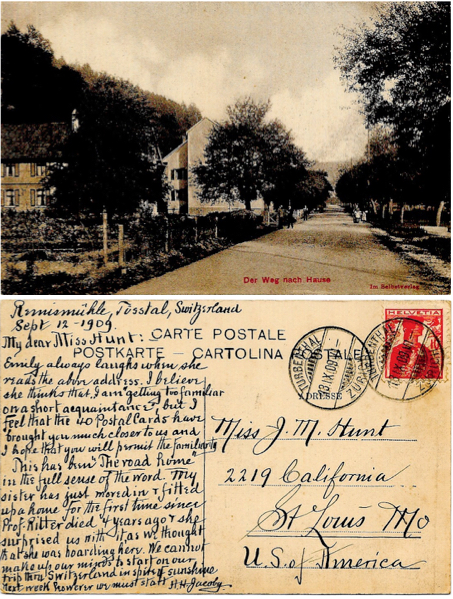 Der Weg nach Hause
Im Selbstverlag
Rämismühle, Tösstal, Switzerland
Sept. 12 - 1909.
My dear Miss Hunt:
Emily always laughs when she
reads the above address. I believe
she thinks that I am getting too familiar
on a short acquaintance, but I
feel that the 40 Postal Cards have
brought you much closer to us and
I hope that you will permit the familiarity
This has been "The road home"
in the full sense of the word. My
sister has just moved in & fitted
up a home for the first time since
Prof. Ritter died 4 years ago & she
surprised us with it as we thought
that she was boarding here. We cannot
make up our minds to start on our
trip thru Switzerland in spite of sunshine
Next week however we must start H.H. Jacoby
CARTE POSTALE
POSTKARTE - CARTOLINA POSTALE
ADRESSE
HELVETIA
TURBENTHAL
13.IX.09
Miss J. M. Hunt
2219 California
St Louis Mo
U.S. of America